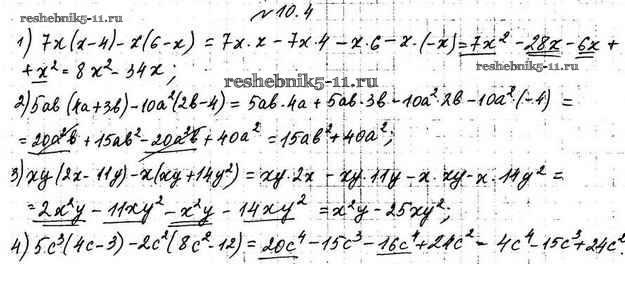 №10.4
reshebnik5-11.ru
1) 7x(x-4)-x(6-x) = 7x·x-7x·4-x·6-x·(-x)=7x²-28x-6x+
+x²=8x²-34x;
reshebnik5-11.ru
reshebnik5-11.ru
2) 5ab(4a+3b)-10a²(2b-4)=5ab·4a+5ab·3b-10a²·2b-10a²·(-4) =
=20a²b+15ab²-20a²b+40a²=15ab²+40a²;
3) xy(2x-11y)-x(xy+14y²)=xy·2x-xy·11y-x·xy-x·14y²=
=2x²y-11xy²-x²y-14xy²=x²y-25xy²;
4) 5c³(4c-3)-2c²(8c²-12)=20c⁴-15c³-16c⁴+24c²=4c⁴-15c³+24c².
reshebnik5-11.ru